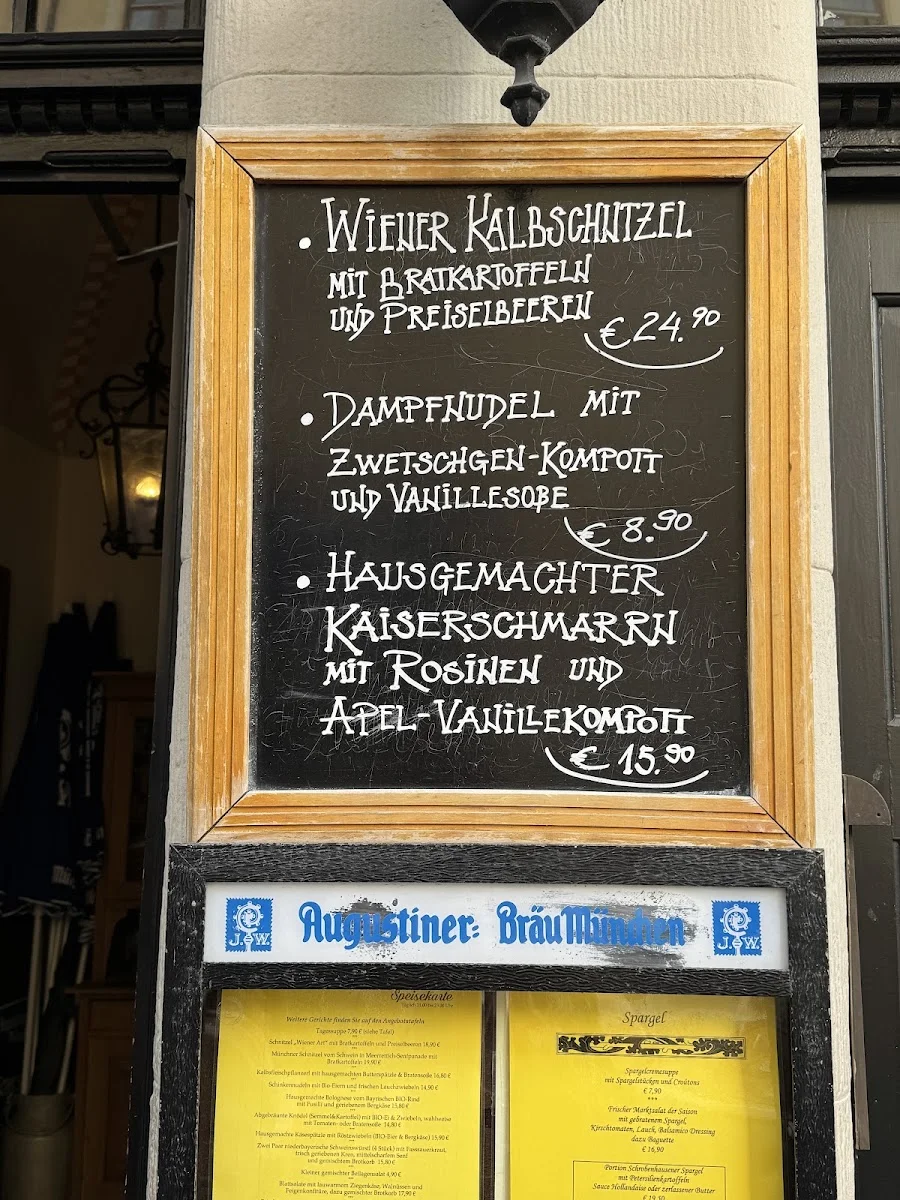 • WIENER KALBSCHNTZEL
MIT BRATKARTOFFELN
UND PREISELBEEREN
€ 24.90
• DAMPFNUDEL MIT
ZWETSCHGEN-KOMPOTT
UND VANILLESOßE
€ 8.90
• HAUSGEMACHTER
KAISERSCHMARRN
MIT ROSINEN UND
APEL-VANILLEKOMPOTT
€ 15.90
J. W. Augustiner: Bräu München J. W.
Speisekarte
Weitere Gerichte finden Sie auf den Angebotstafeln
Tagessuppe 7,90 € (siehe Tafel)
***
Schnitzel „Wiener Art" mit Bratkartoffeln und Preiselbeeren 18,90 €
***
Münchner Schnitzel vom Schwein in Meerrettich-Senfpanade mit
Bratkartoffeln 19,90 €
***
Kalbfleischpflanzerl mit hausgemachten Butterspätzle & Bratensoße 16,80 €
***
Schinkennudeln mit Bio-Eiern und frischen Lauchzwiebeln 14,90 €
***
Hausgemachte Bolognese vom Bayrischen BIO-Rind
mit Pasta und geriebenem Bergkäse 15,80 €
***
Abgebräunte Knödel (Semmel&Kartoffel) mit BIO-Ei & Zwiebeln, wahlweise
mit Tomaten- oder Bratensoße 14,80 €
***
Hausgemachte Käsespätzle mit Röstzwiebeln (BIO-Eier & Bergkäse) 15,90 €
***
Zwei Paar niederbayerische Schweinswürstl (4 Stück) mit Fasssauerkraut,
frisch geriebenen Kren, mittelscharfem Senf
und gemischtem Brotkorb 15,80 €
***
Kleiner gemischter Beilagensalat 4,90 €
***
Blattsalate mit lauwarmem Ziegenkäse, Walnüssen und
Feigenkonfitüre, dazu gemischter Brotkorb 17,90 €
Spargel
Spargelcremesuppe
mit Spargelstücken und Croûtons
€ 7,90
***
Frischer Marktsalat der Saison
mit gebratenem Spargel,
Kirschtomaten, Lauch, Balsamico Dressing
dazu Baguette
€ 16,90
Portion Schrobenhausener Spargel
mit Petersilienkartoffeln
Sauce Hollandaise oder zerlassener Butter